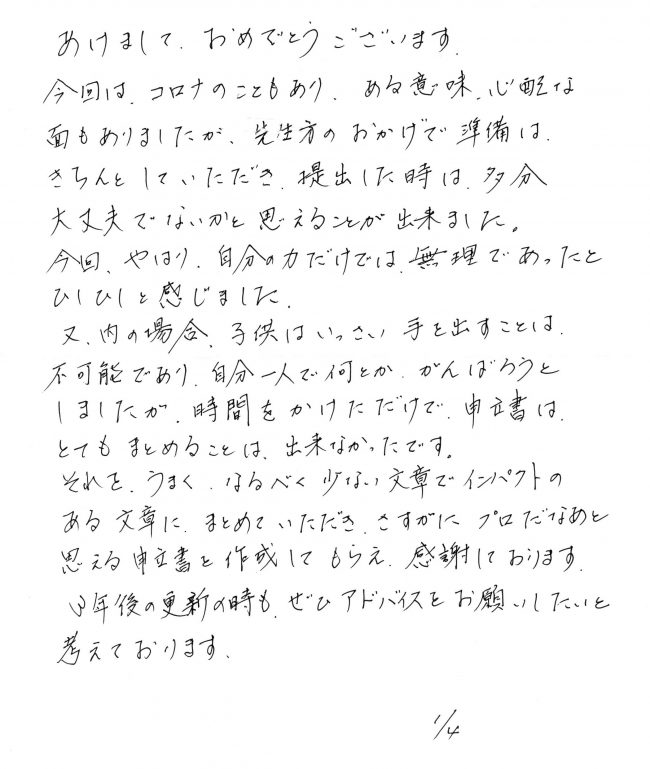 あけまして、おめでとうございます。
今回は、コロナのこともあり、ある意味、心配な
面もありましたが、先生方のおかげで準備は、
きちんとしていただき、提出した時は、多分
大丈夫でないかと思えることが出来ました。
今回、やはり、自分の力だけでは、無理であったと
ひしひしと感じました。
又、内の場合、子供はいっさい手を出すことは、
不可能であり、自分一人で何とか、がんばろうと
しましたが、時間をかけただけで、申立書は、
とてもまとめることは、出来なかったです。
それを、うまく、なるべく少ない文章でインパクトの
ある文章に、まとめていただき、さすがにプロだなあと
思える申立書を作成してもらえ、感謝しております。
3年後の更新の時も、ぜひアドバイスをお願いしたいと
考えております。
1/4